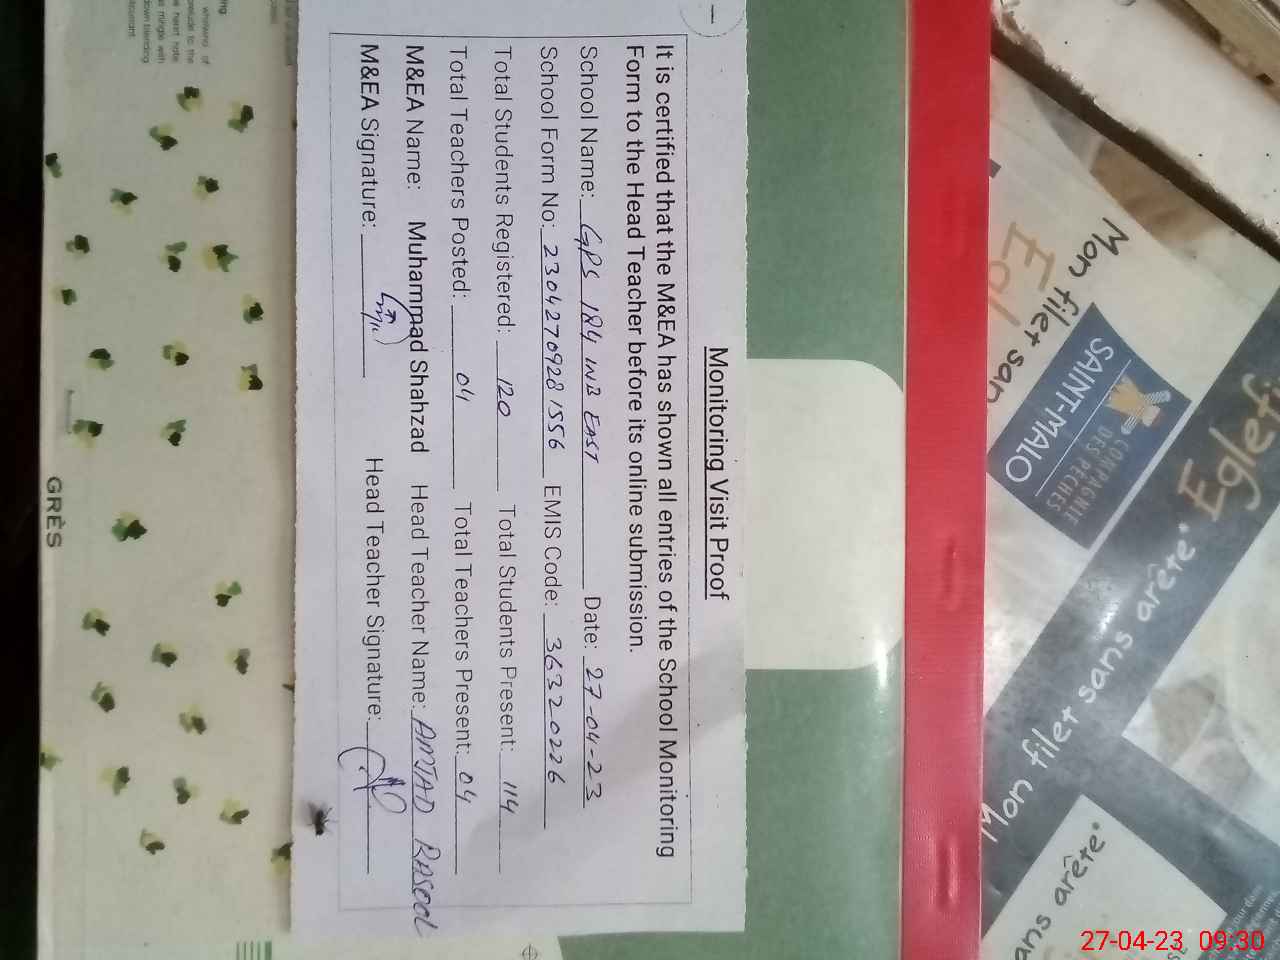 Monitoring Visit Proof
It is certified that the M&EA has shown all entries of the School Monitoring
Form to the Head Teacher before its online submission.
School Name: GPS 124 1NB EAST Date: 27-04-23
School Form No: 23042709281556 EMIS Code: 36320226
Total Students Registered: 120 Total Students Present: 114
Total Teachers Posted: 04 Total Teachers Present: 04
M&EA Name: Muhammad Shahzad Head Teacher Name: AMJAD RASOOL
M&EA Signature: Head Teacher Signature:
GRÈS
Mon filet san
SAINT-MALO
COMPAGNIE
DES PÊCHES
Eglef
Mon filet sans arête*
ans arête*
27-04-23 09:30